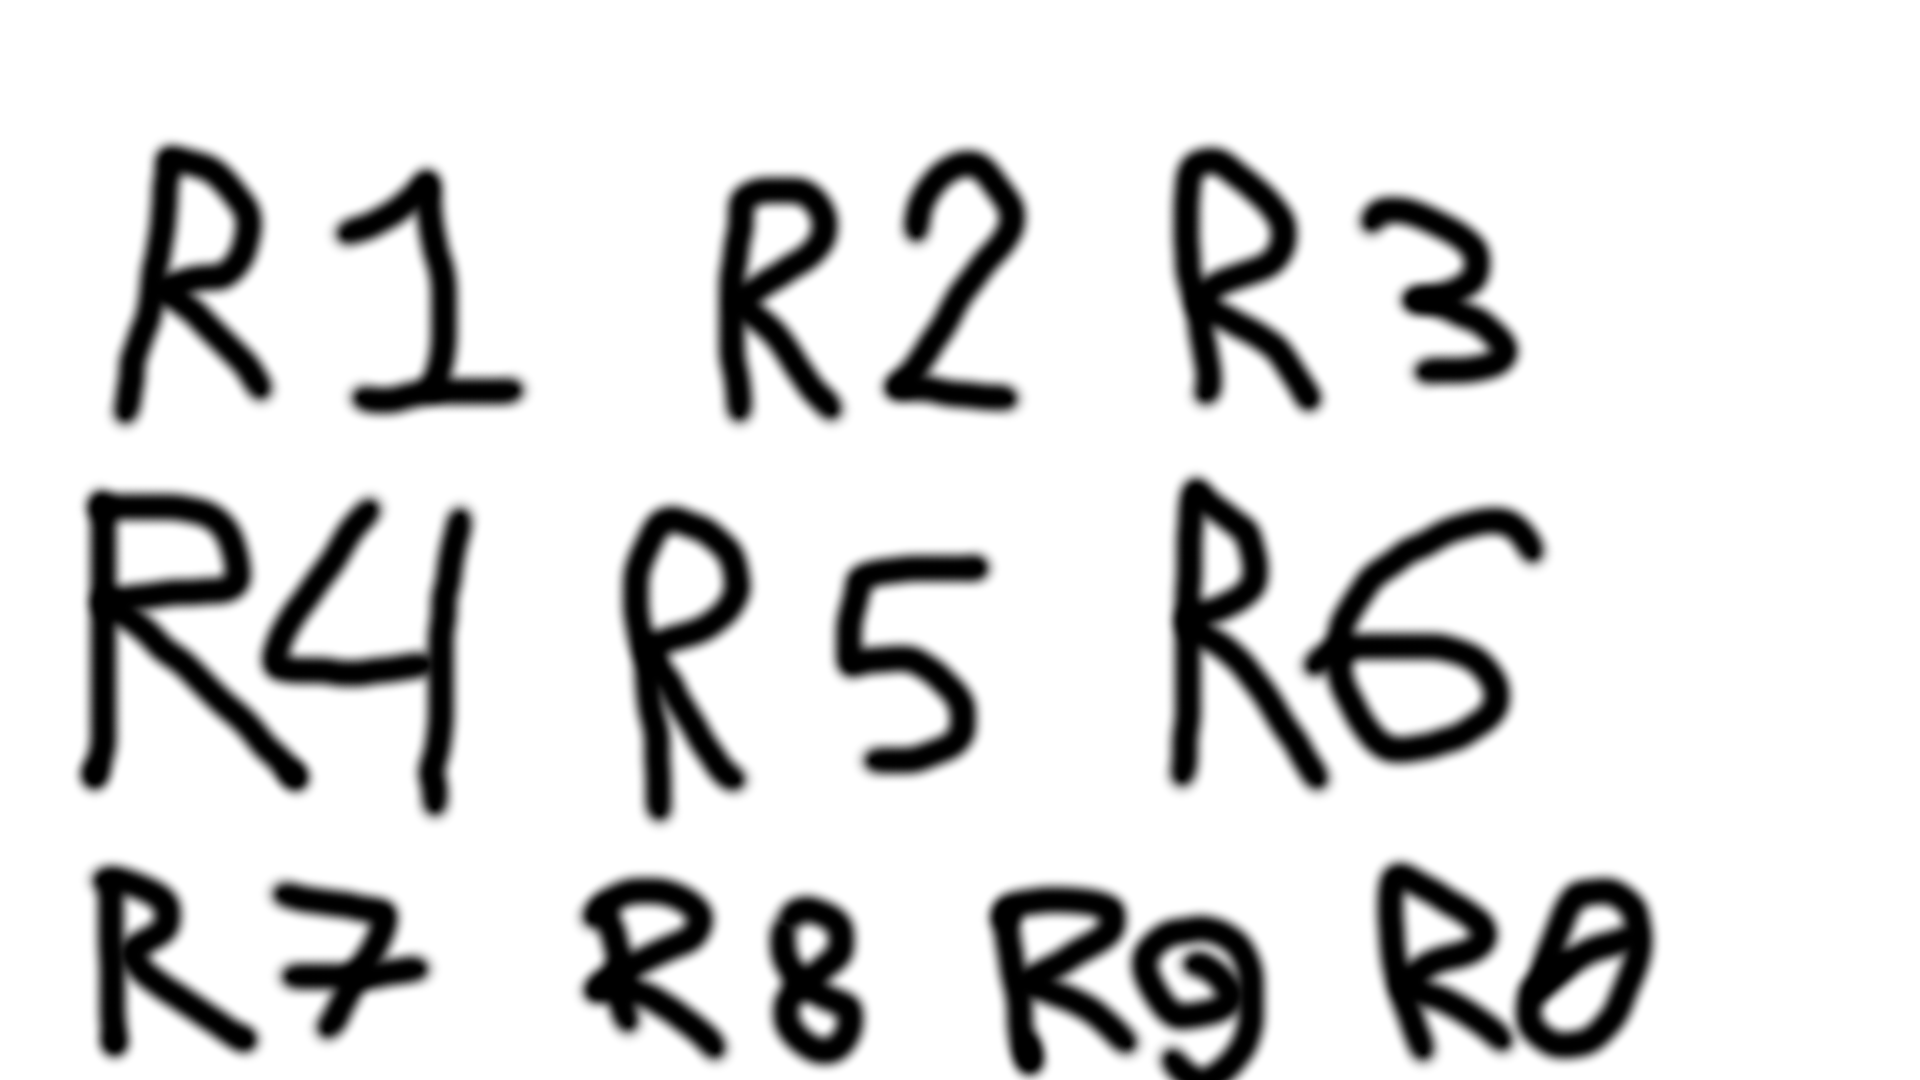 R1 R2 R3
R4 R5 R6
R7 R8 R9 R0